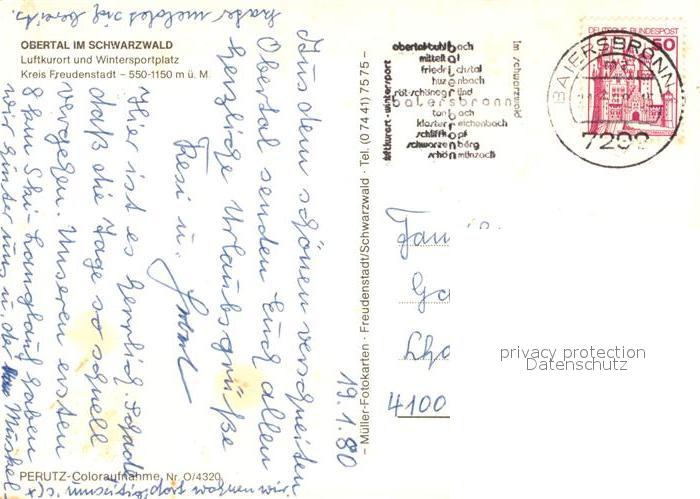 OBERTAL IM SCHWARZWALD
Luftkurort und Wintersportplatz
Kreis Freudenstadt – 550-1150 m ü. M.
Aus dem schönen verschneiten
Obertal senden Euch allen
herzliche Urlaubsgrüße
Resi u.
Hier ist es herrlich. Schade
daß die Tage so schnell
vergehen. Unseren ersten
8 km Ski-Langlauf haben
wir hinter uns u. der Muskel-
kater meldet sich bereits.
19.1.80
PERUTZ-Coloraufnahme, Nr. O/4320
– Müller-Fotokarten · Freudenstadt/Schwarzwald · Tel. (0 74 41) 75 75 –
luftkurort - wintersport
obertal-buhlbach
mitteltal
friedrichstal
huzenbach
röt-schönegründ
baiersbronn
tonbach
klosterreichenbach
schliffkopf
schwarzenberg
schönmünzach
im schwarzwald
DEUTSCHE BUNDESPOST
50
BAIERSBRONN
Fam
Ga
4100
privacy protection
Datenschutz